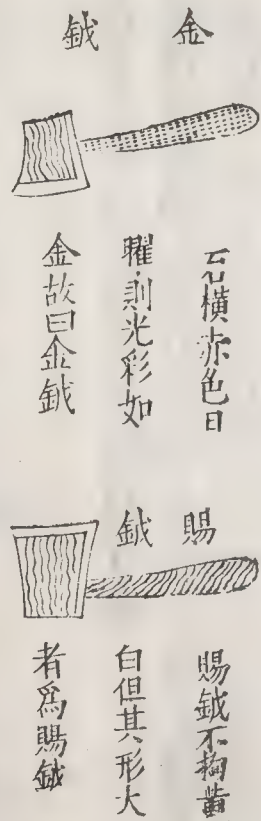 金鉞
石橫赤色日
曜則光彩如
金故曰金鉞
賜鉞
賜鉞不拘黃
白但其形大
者爲賜鉞